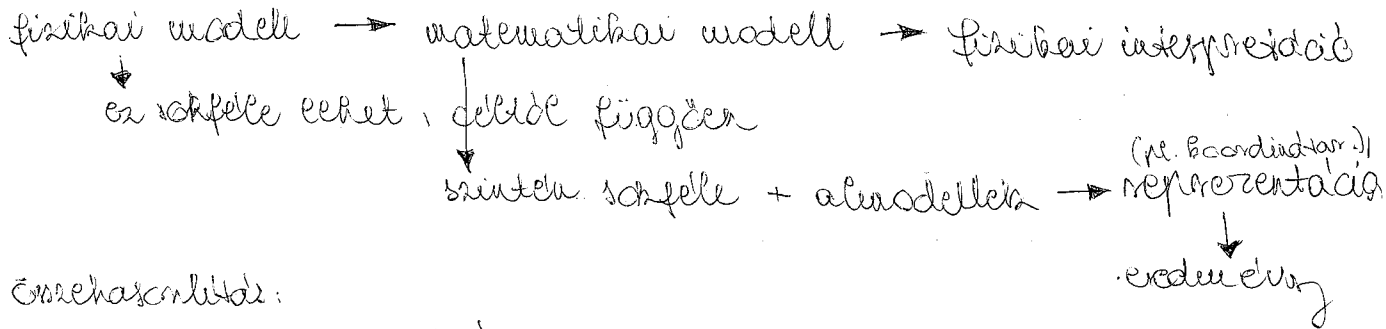 fizikai modell → matematikai modell → fizikai interpretáció
ez sokféle lehet, céltól függően
(pl. koordinátar.)
szintén sokféle + almodellek → reprezentáció
eredmény
összehasonlítás: